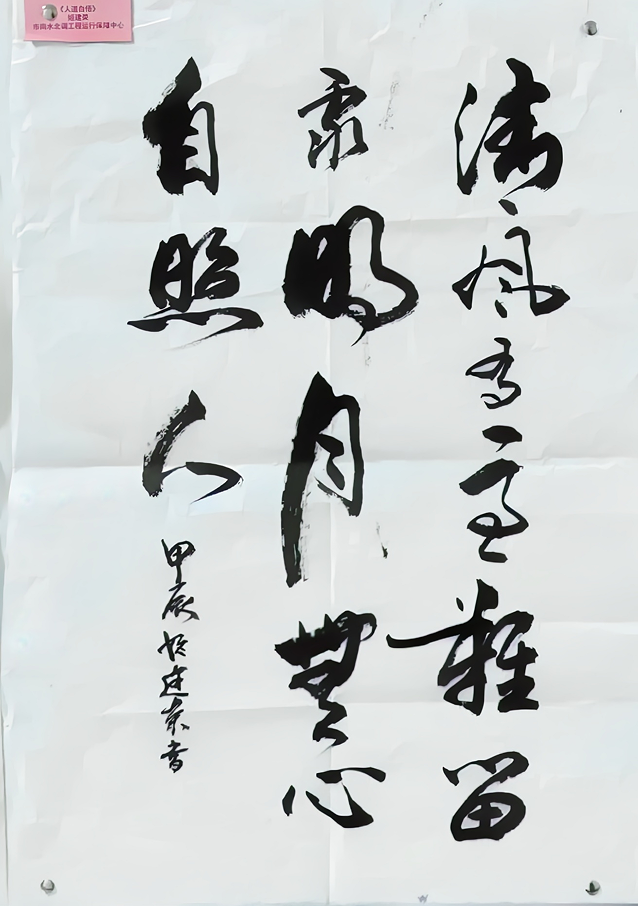 《人道自悟》
姬建荣
市南水北调工程运行保障中心
清风有意難留
明月無心
自照人
甲辰姬建荣書